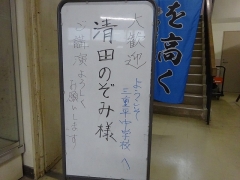 大歓迎
ようこそ
三重平中学校へ
清田のぞみ様
ご講演よろしく
お願いします
を高く